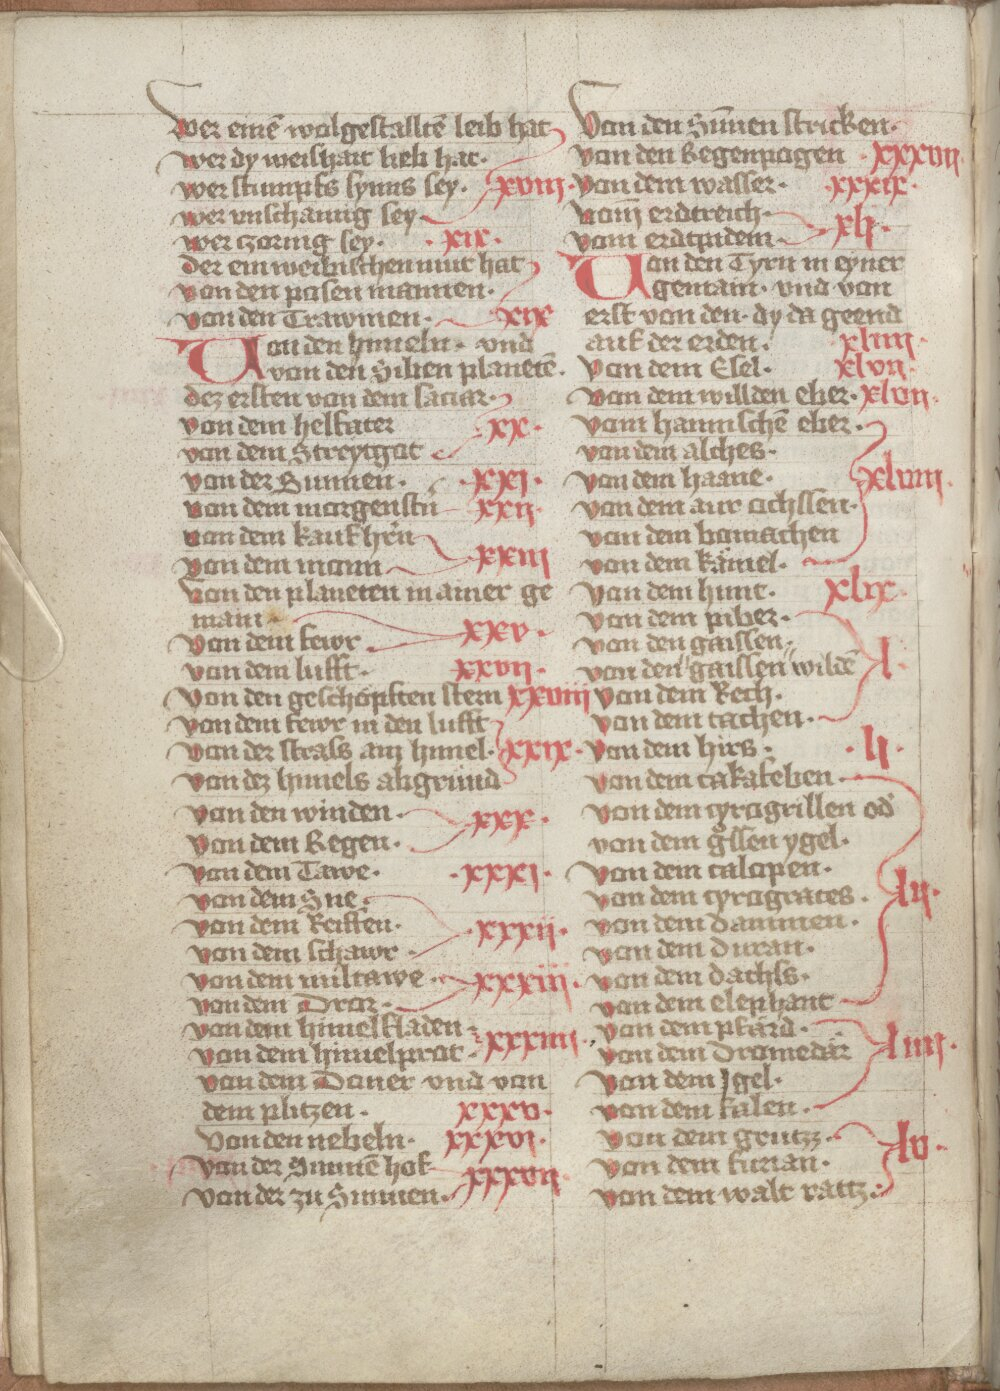 Wer einē wolgestalltē leib hat
wer dy weishait lieb hat.
wer stumpfs synns sey. xviii.
wer vnschamig sey.
wer czornig sey. . xix.
der ein weibischen mut hat
von den posen mannen.
von den Trawmen. xix
Von den himeln. vnd
von den Siben planetē.
dez ersten von dem satiar.
von dem helfater xx.
von dem Streytgot
von der Sunnen. .xxi.
von dem morgenstn̄ xxii.
von dem kaufhr̄n
von dem monn xxiii
Von den planeten in ainer ge
main
von dem fewr. xxv.
von dem lufft. xxvii.
von den geschopften stern xxviii
von dem fewr in den lufft
von der strass am himel. xxix.
von dez himels abgrund
von den winden.
von dem Regen. xxx.
von dem Tawe. .xxxi.
von dem Sne.
von dem Reiffen. xxxii.
von dem schawr.
von dem miltawe. xxxiii.
von dem Dror.
von dem himelfladen
von dem himelprot. xxxiiii.
von dem Doner vnd von
dem plitzen. xxxv.
Von den nebeln. xxxvi.
von der Sunnē hof xxxvii
von der zu Sunnen.
Von den Sūnen stricken.
von den Regenpogen .xxxviii.
von dem wasser. .xxxix.
vom erdtreich.
vom erdtpidem. xli.
Von den Tyrn in eyner
gemain. vnd von
erst von den. dy da geend
auf der erden. xliiii
Von dem Esel. xlvii.
von dem willden eber. xlvii.
vom haimischē eber.
von dem alches.
von dem haane. xlviii.
von dem aur ochssen.
von dem bomachen
von dem kāmel.
von dem hunt. xlix.
von dem piber.
von den gaissen.
von den gaissen wildē l.
von dem Rech.
von dem tachen.
von dem hirs. . li.
von dem cakateben.
von dem cyrogrillen od̄
von dem gssen ygel.
von dem calopen.
von dem cyrogrates. lii.
von dem dammen.
von dem duran.
von dem dachss.
von dem elephant
von dem pfārd.
von dem Dromedār liiii.
von dem Jgel.
von dem falen.
von dem grutzz.
von dem furian. lv.
von dem walt rattz.